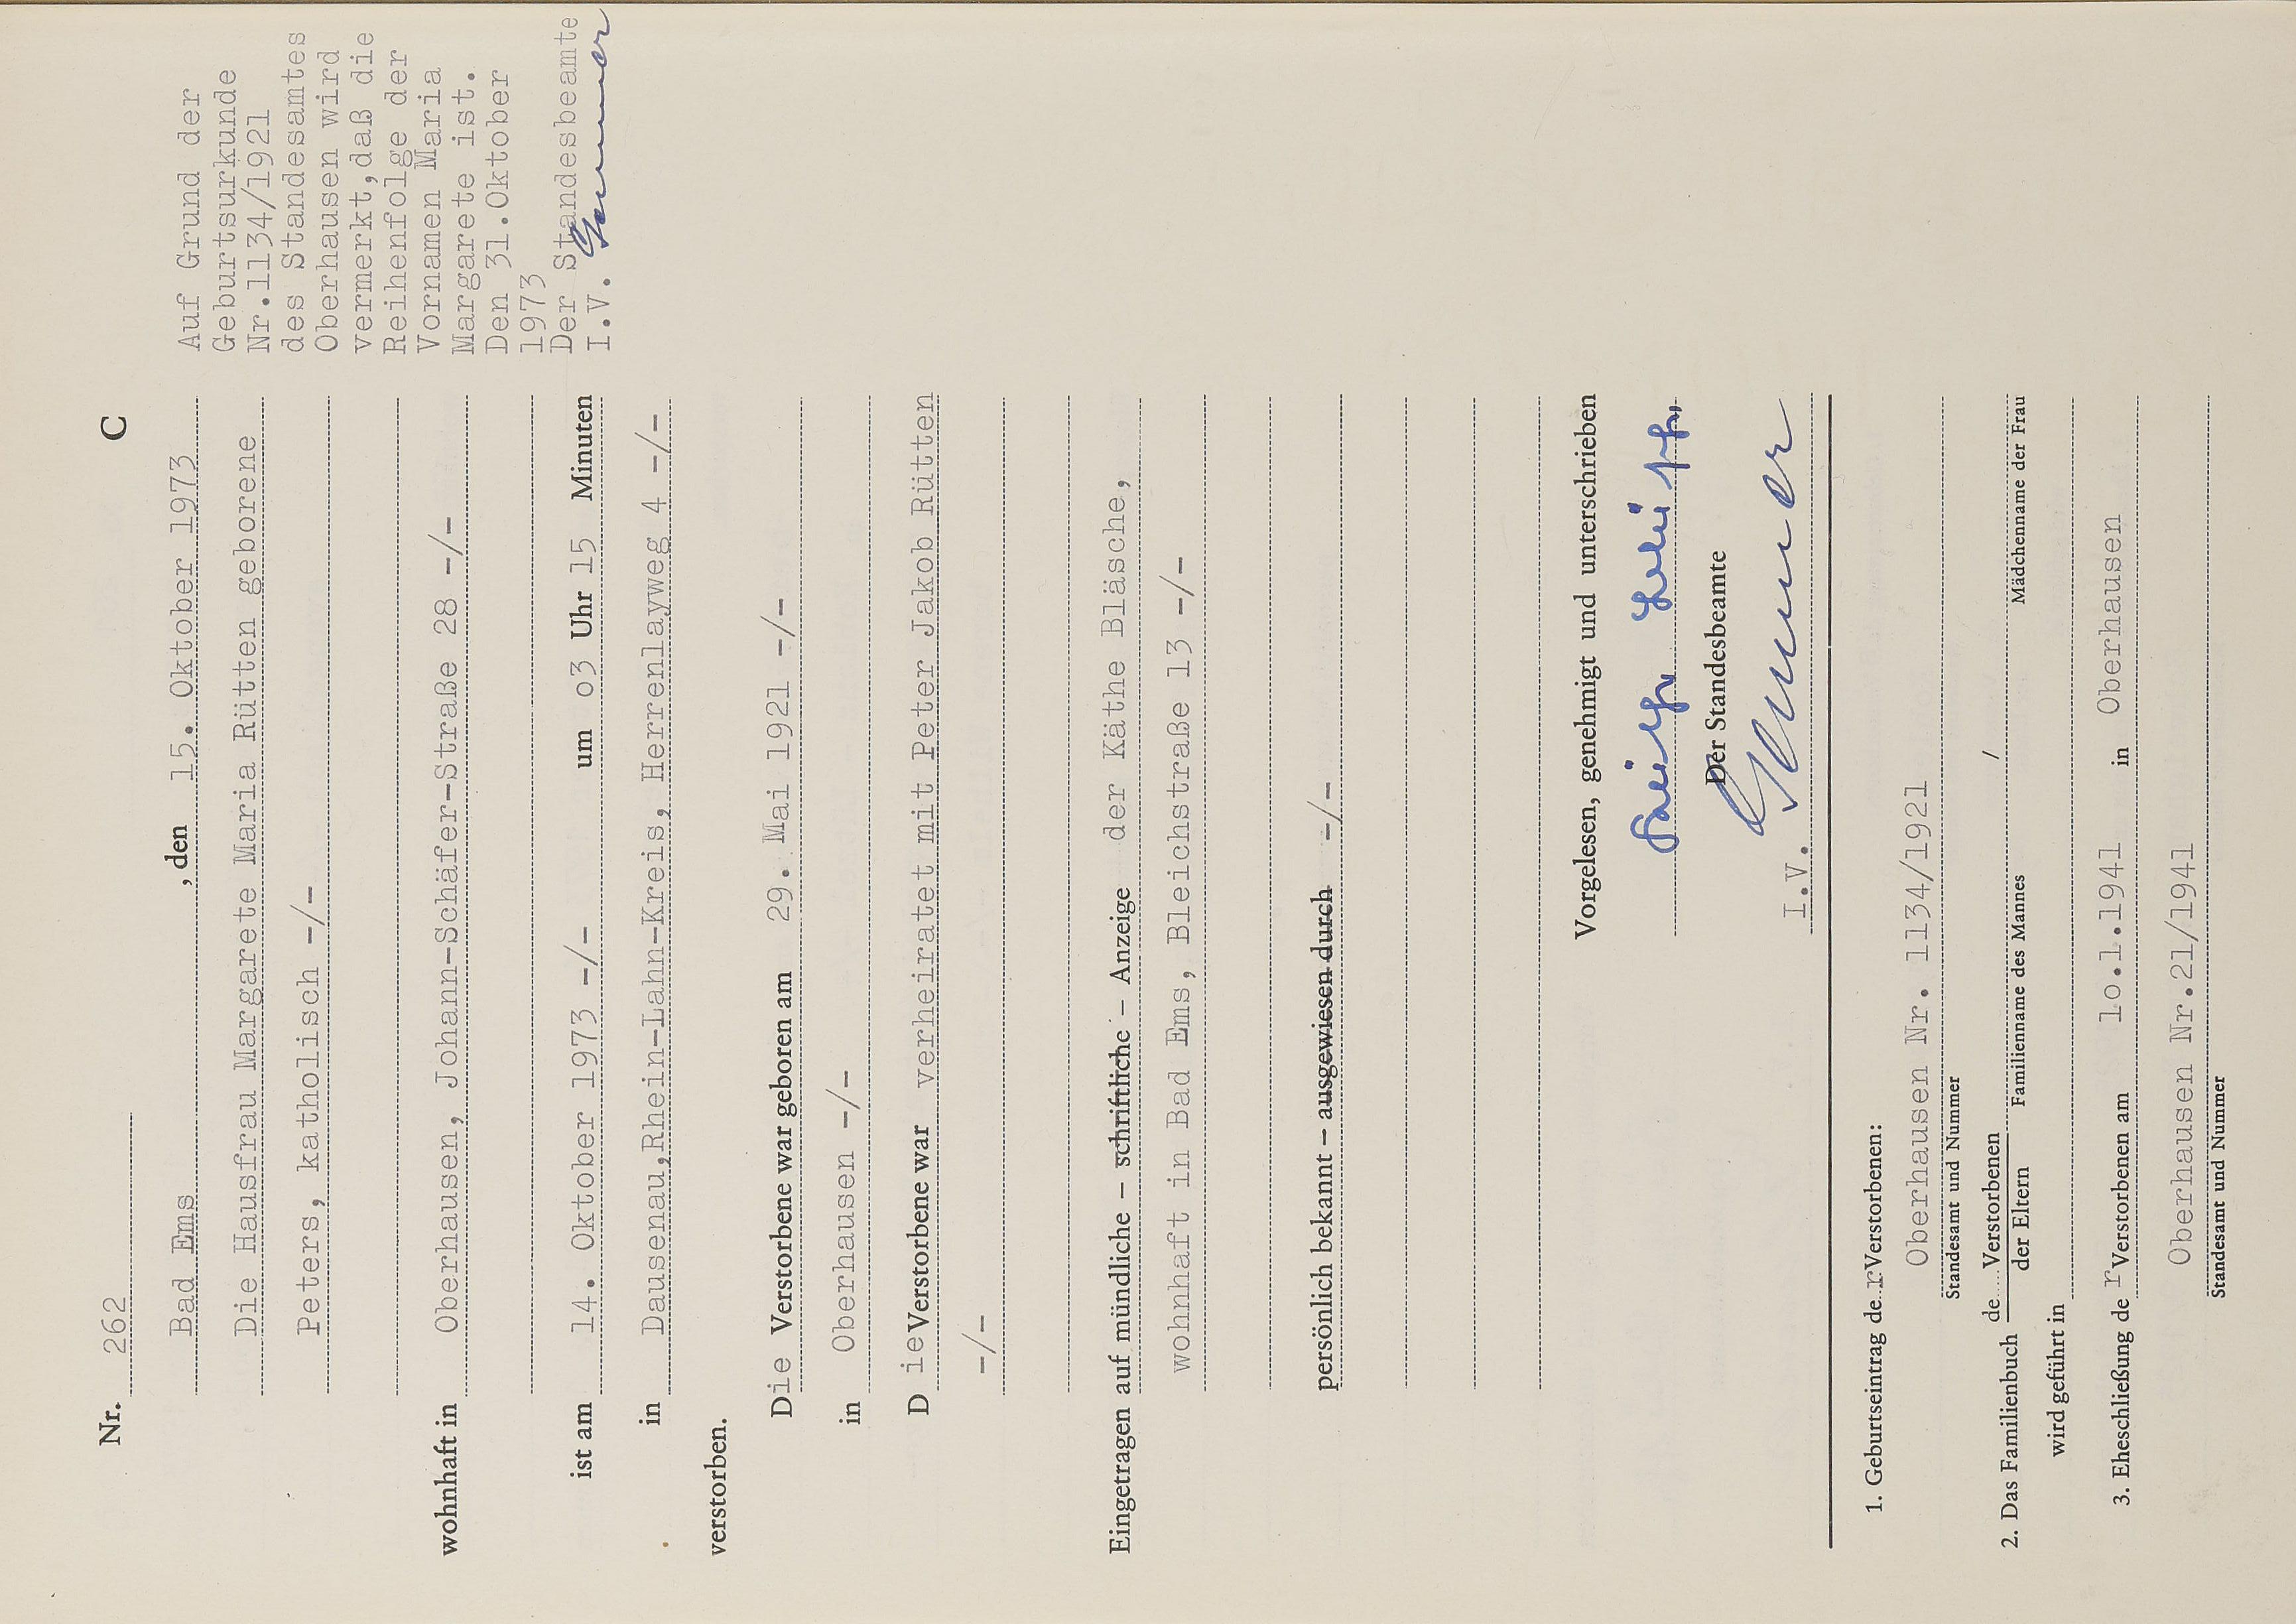 Nr. 262 C
Bad Ems , den 15. Oktober 1973
Die Hausfrau Margarete Maria Rütten geborene
Peters, katholisch -/-
wohnhaft in Oberhausen, Johann-Schäfer-Straße 28 -/-
ist am 14. Oktober 1973 -/- um o3 Uhr 15 Minuten
in Dausenau,Rhein-Lahn-Kreis, Herrenlayweg 4 -/-
verstorben.
Die Verstorbene war geboren am 29. Mai 1921 -/-
in Oberhausen -/-
Die Verstorbene war verheiratet mit Peter Jakob Rütten
-/-
Eingetragen auf mündliche – schriftliche – Anzeige der Käthe Bläsche,
wohnhaft in Bad Ems, Bleichstraße 13 -/-
persönlich bekannt – ausgewiesen durch -/-
Vorgelesen, genehmigt und unterschrieben
Der Standesbeamte
I.V.
1. Geburtseintrag der Verstorbenen:
Oberhausen Nr. 1134/1921
Standesamt und Nummer
2. Das Familienbuch de Verstorbenen /
der Eltern Familienname des Mannes Mädchenname der Frau
wird geführt in
3. Eheschließung der Verstorbenen am 1o.1.1941 in Oberhausen
Oberhausen Nr.21/1941
Standesamt und Nummer
Auf Grund der
Geburtsurkunde
Nr.1134/1921
des Standesamtes
Oberhausen wird
vermerkt,daß die
Reihenfolge der
Vornamen Maria
Margarete ist.
Den 31.Oktober
1973
Der Standesbeamte
I.V.